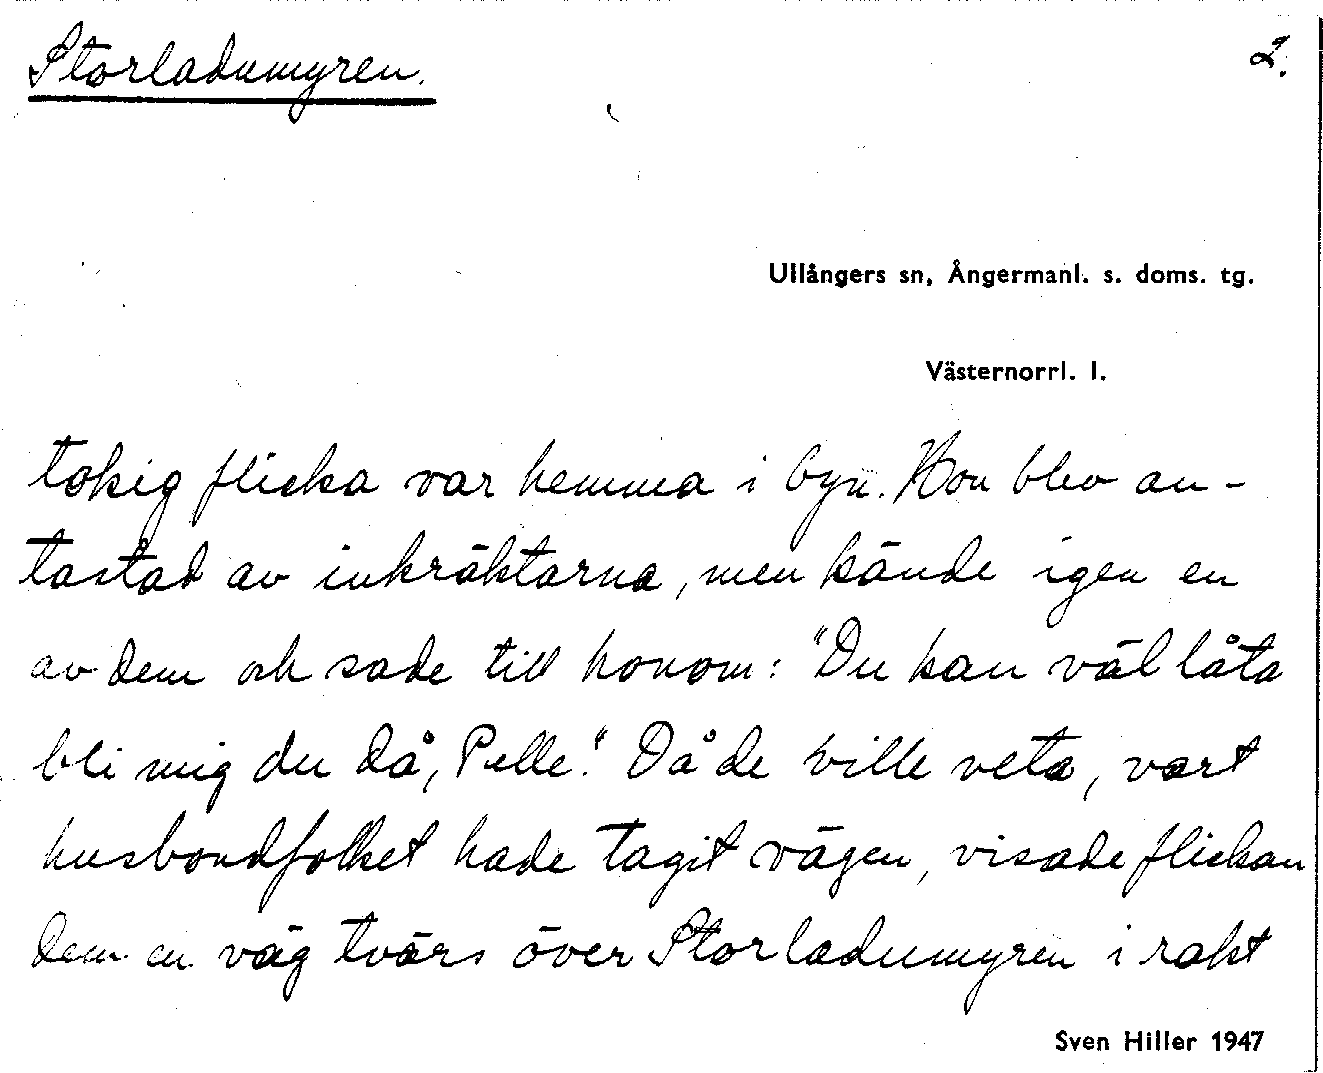 Storladumyren.
2.
Ullångers sn, Ångermanl. s. doms. tg.
Västernorrl. l.
tokig flicka var hemma i byn. Hon blev an-
tastad av inkräktarna, men kände igen en
av dem och sade till honom: "Du kan väl låta
bli mig du då, Pelle." Då de ville veta, vart
husbondfolket hade tagit vägen, visade flickan
dem en väg tvärs över Storladumyren i rakt
Sven Hiller 1947